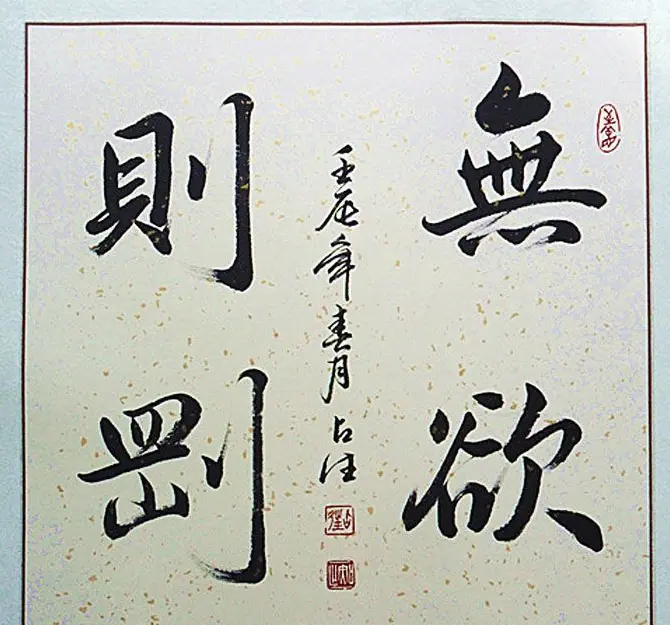 無欲
則剛
壬辰年春月占往